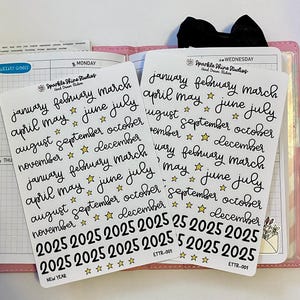 WEEKLY GOALS
MONDAY
WEDNESDAY
Sparkle Shine Studios
Hand Drawn Stickers
january february march
april may june july
august september october
november december
january february march
april may june july
august september october
november december
2025 2025 2025 2025
2025 2025 2025 2025
NEW YEAR
ETTR-001
Sparkle Shine Studios
Hand Drawn Stickers
january february march
april may june july
august september october
december
february march
may june july
september october
december
2025 2025 2025
2025 2025 2025
ETTR-001